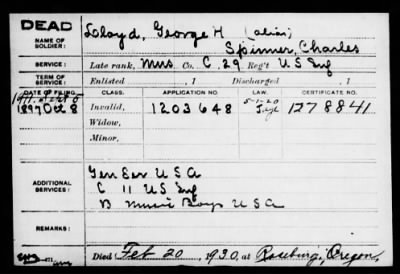 DEAD
NAME OF SOLDIER: Loloyd, George H (alias)
Spinner, Charles
SERVICE: Late rank, Mus Co. C, 29 Reg't US Inf
TERM OF SERVICE: Enlisted , 1 Discharged , 1
DATE OF FILING. CLASS. APPLICATION NO. LAW. CERTIFICATE NO.
5-1-20
1897 Oct 8 Invalid, 1203648 1278841
Widow,
Minor,
ADDITIONAL SERVICES: Gen Ser U S A
C 11 U S Inf
B Music Boys U S A
REMARKS:
Died Feb 20, 1930, at Roseburg, Oregon,